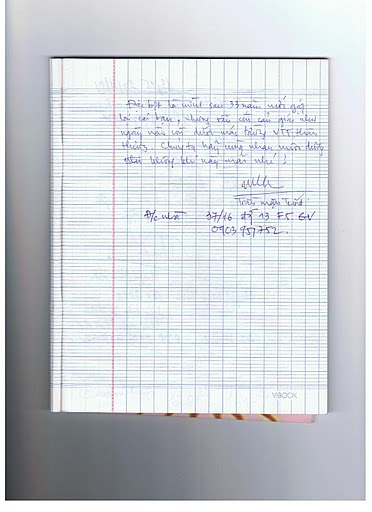 Đặc biệt là mình sau 33 năm mới gặp
lại các bạn, nhưng vẫn còn cảm giác như
ngày nào còn dưới mái trường VTT thân
thương. Chúng ta hãy cùng nhau nuôi dưỡng
bầu không khí này mãi nhé!
Trần
Đ/c nhà 37/16 Đg 13 F5 GV
0903 951752.
VIBOOK